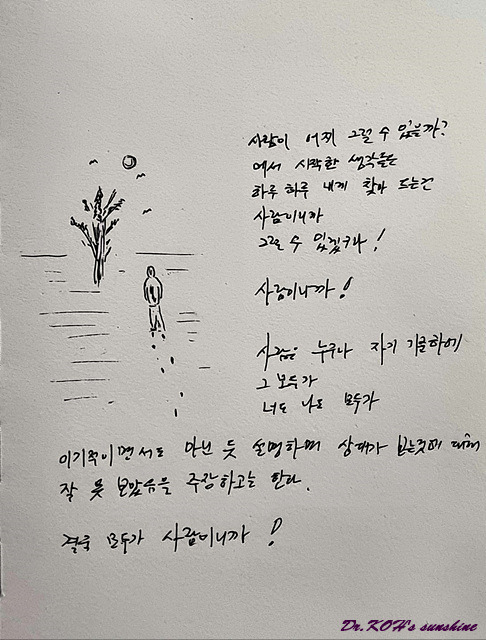 사람이 어찌 그럴 수 있을까?
에서 시작한 생각들은
하루 하루 내게 찾아 드는건
사람이니까
그럴 수 있겠구나!
사람이니까!
사람은 누구나 자기 기준하에
그 모두가
너도 나도 모두가
이기적이면서도 아닌 듯 설명하며 상대가 보는것에 대해
잘 못 보았음을 주장하고는 한다.
결국 모두가 사람이니까!
Dr.KOH's sunshine